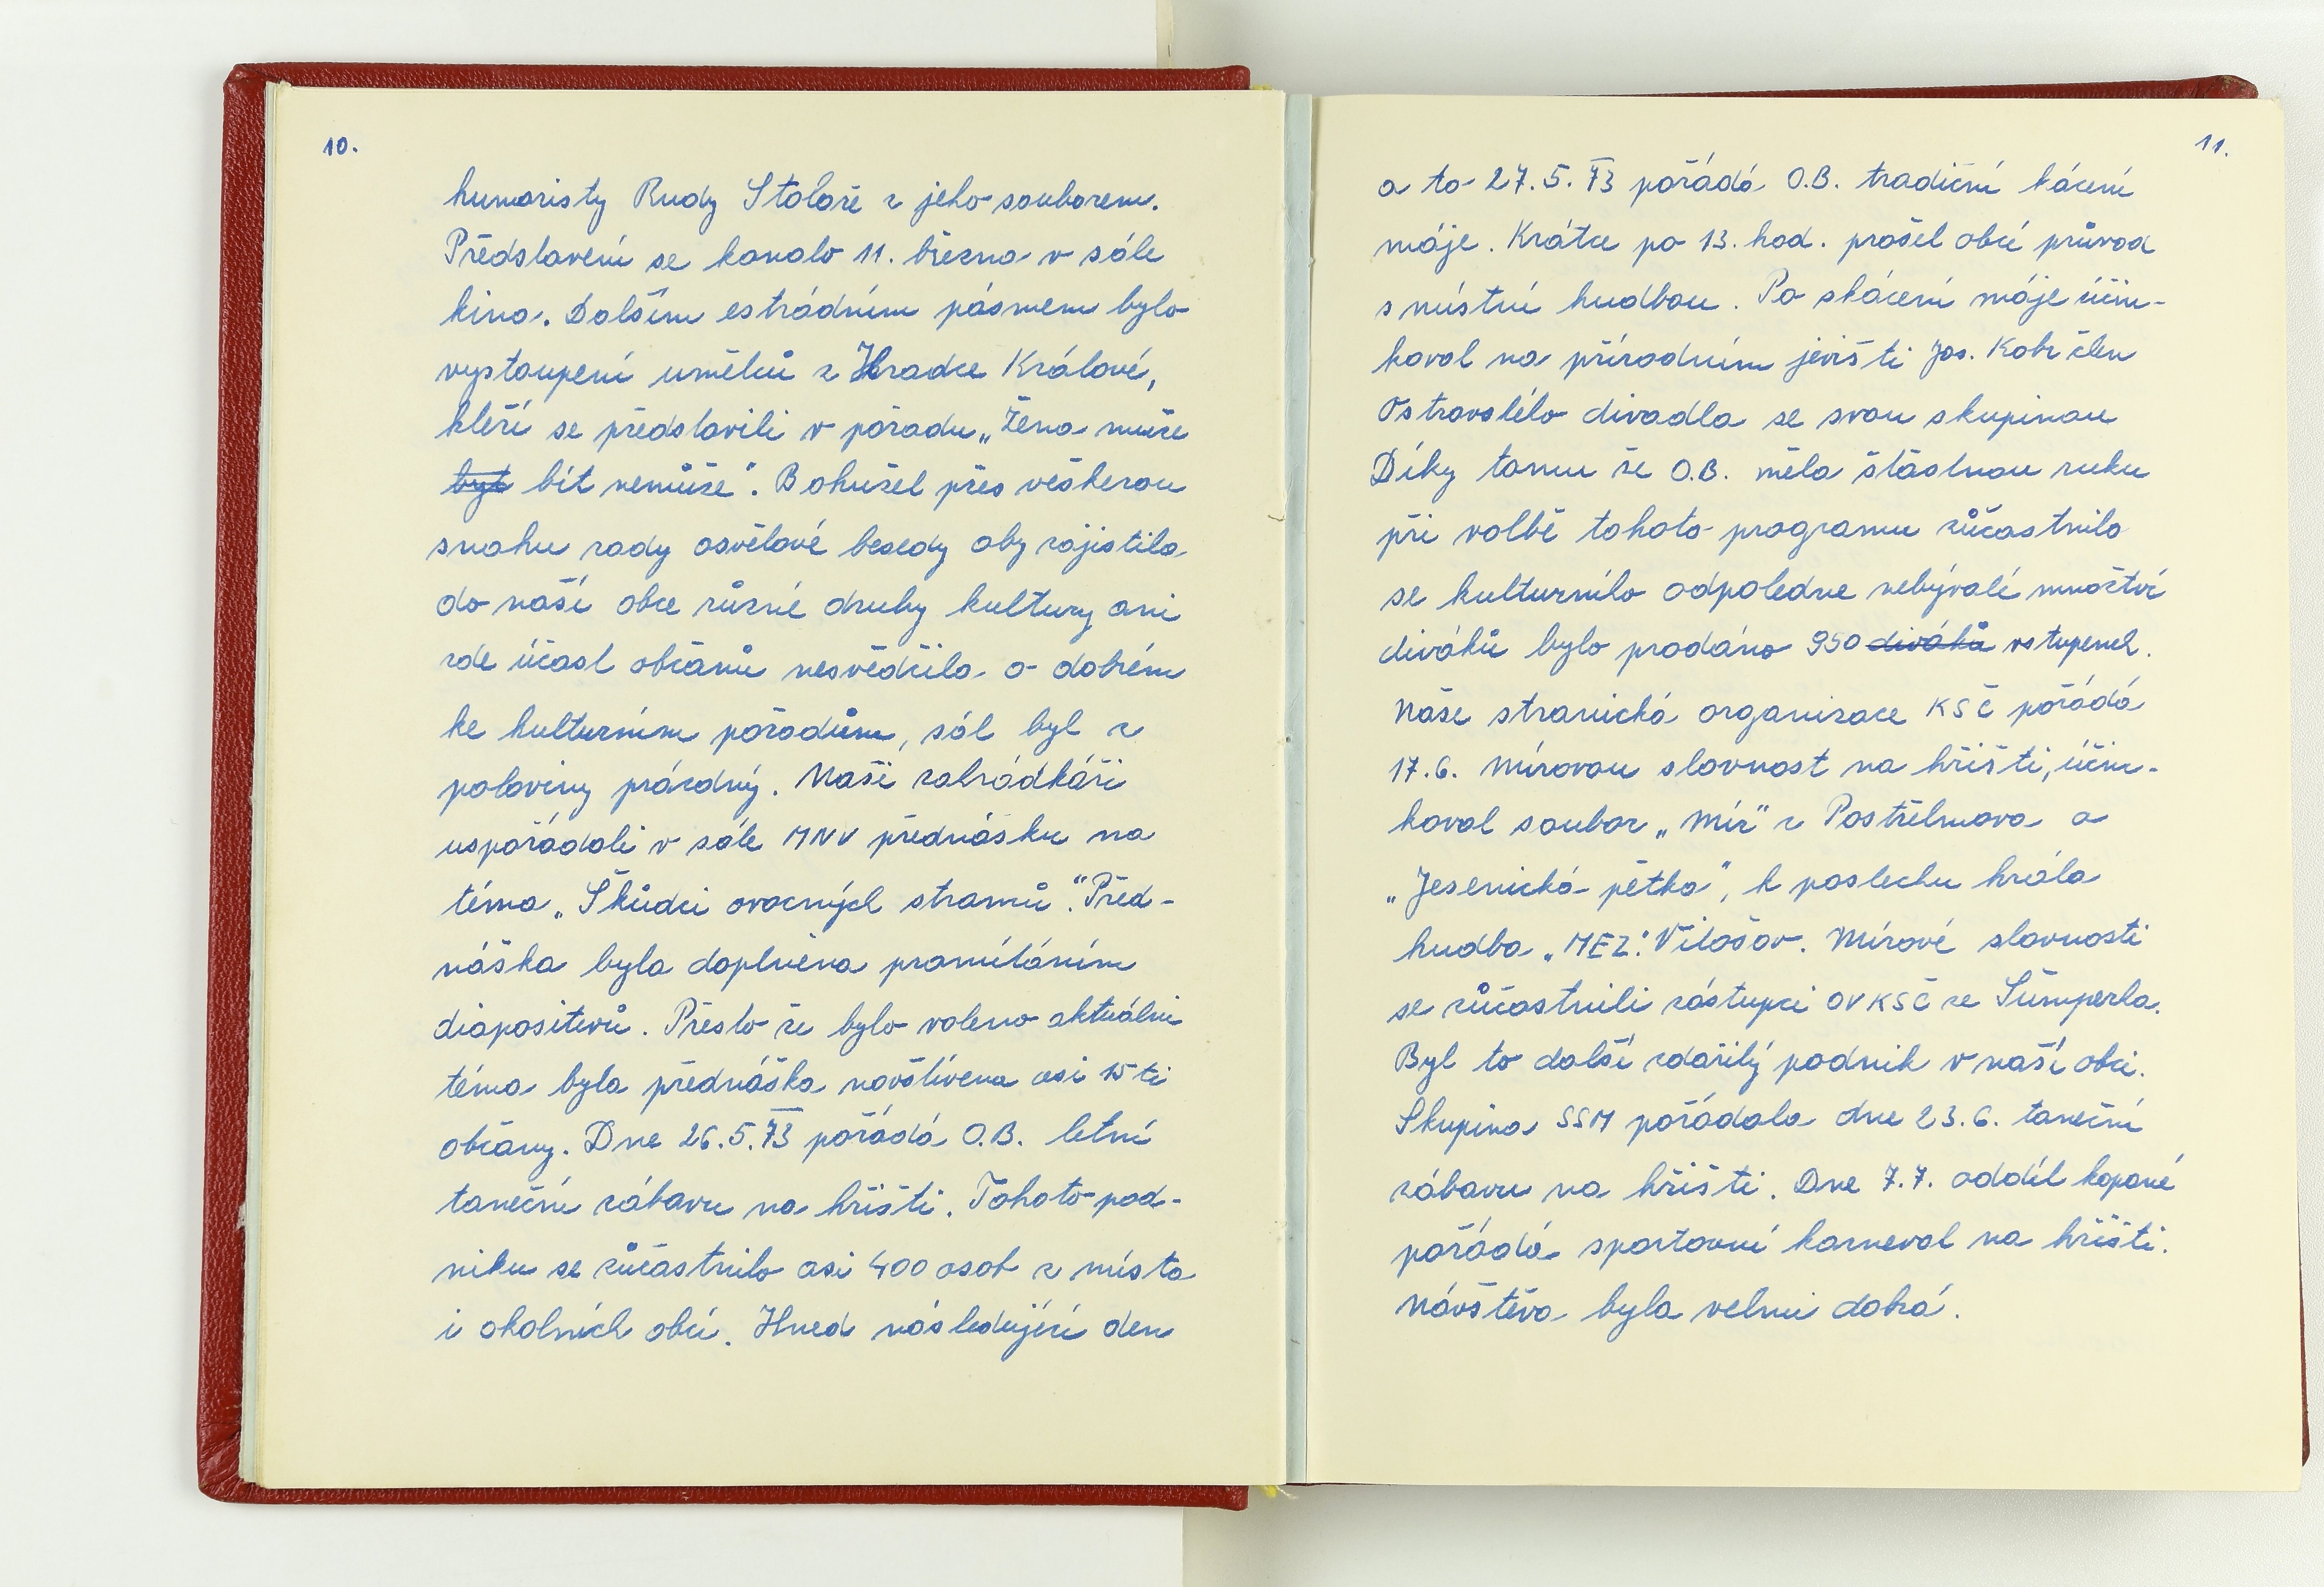 10.
humoristy Rudy Stolaře z jeho souborem.
Představení se konalo 11. března v sále
kina. Dalším estrádním pásmem bylo
vystoupení umělců z Hradce Králové,
kteří se představili v pořadu „Žena muže
být bít nemůže“. Bohužel přes veškerou
snahu rady osvětové besedy aby zajistila
do naší obce různé druhy kultury ani
zde účast občanů nesvědčila o dobrém
ke kulturním pořadům, sál byl z
poloviny prázdný. Naši zahrádkáři
uspořádali v sále MNV přednášku na
téma „Škůdci ovocných stromů“. Před-
náška byla doplněna promítáním
diapositivů. Přesto že bylo voleno aktuální
téma byla přednáška navštívena asi 15ti
občany. Dne 26.5.73 pořádá O.B. letní
taneční zábavu na hřišti. Tohoto pod-
niku se zůčastnilo asi 400 osob z místa
i okolních obcí. Hned následující den
11.
a to 27.5.73 pořádá O.B. tradiční kácení
máje. Krátce po 13. hod. prošel obcí průvod
s místní hudbou. Po skácení máje účin-
koval na přírodním jevišti Jos. Kobr člen
Ostravského divadla se svou skupinou
Díky tomu že O.B. měla šťastnou ruku
při volbě tohoto programu zůčastnilo
se kulturního odpoledne nebývalé množtví
diváků bylo prodáno 950 diváků vstupenek.
Naše stranická organizace KSČ pořádá
17.6. Mírovou slavnost na hřišti, účin-
koval soubor „Mír“ z Postřelmova a
„Jesenická pětka“, k poslechu hrála
hudba „MEZ“. Vitošov. Mírové slavnosti
se zůčastnili zástupci OV KSČ ze Šumperka.
Byl to další zdařilý podnik v naší obci.
Skupina SSM pořádala dne 23.6. taneční
zábavu na hřišti. Dne 7.7. oddíl kopané
pořádá sportovní karneval na hřišti.
Návštěva byla velmi dobrá.